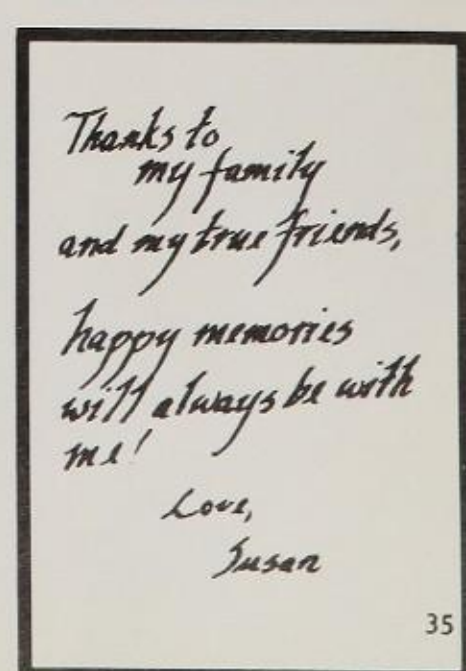 Thanks to
my family
and my true friends,
happy memories
will always be with
me!
Love,
Susan
35